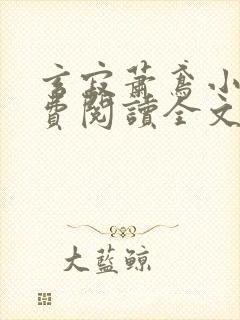 言寂蕭鳶小
費閱讀全文
大藍鯨